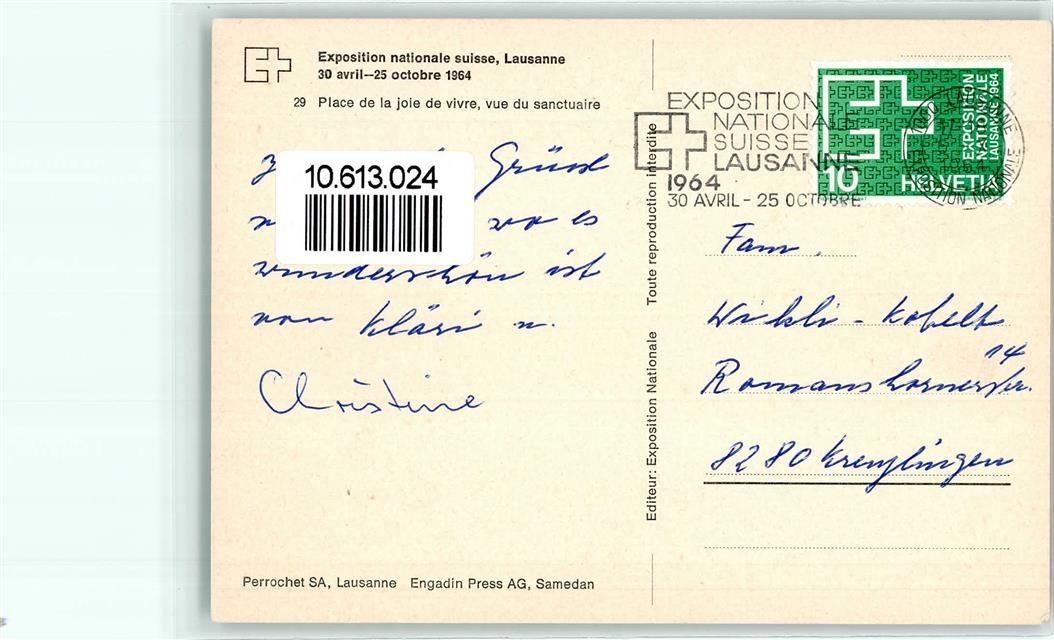 Exposition nationale suisse, Lausanne
30 avril—25 octobre 1964
29 Place de la joie de vivre, vue du sanctuaire
10.613.024
Grüsse
wo es
wunderschön ist
von Kläri u.
Christine
Perrochet SA, Lausanne Engadin Press AG, Samedan
Editeur: Exposition Nationale Toute reproduction interdite
EXPOSITION
NATIONALE
SUISSE
LAUSANNE
1964
30 AVRIL - 25 OCTOBRE
EXPOSITION
NATIONALE
LAUSANNE 1964
10 HELVETIA
1000 LAUSANNE
EXPOSITION NATIONALE
Fam.
Wikli - Kobelt
Romanshornerstr. 14
8280 Kreuzlingen